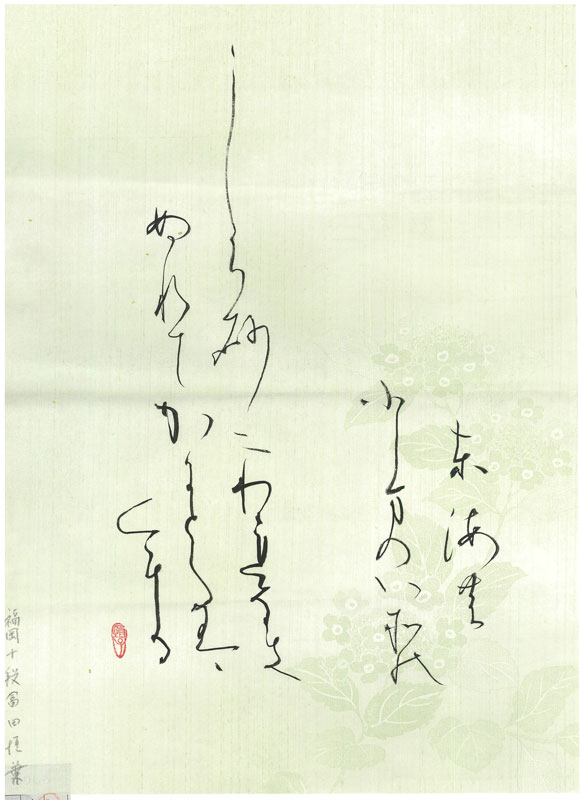 東海の
小しまのいその
しら砂にわれなき
ぬれてかにとたは
むる
福岡十段冨田